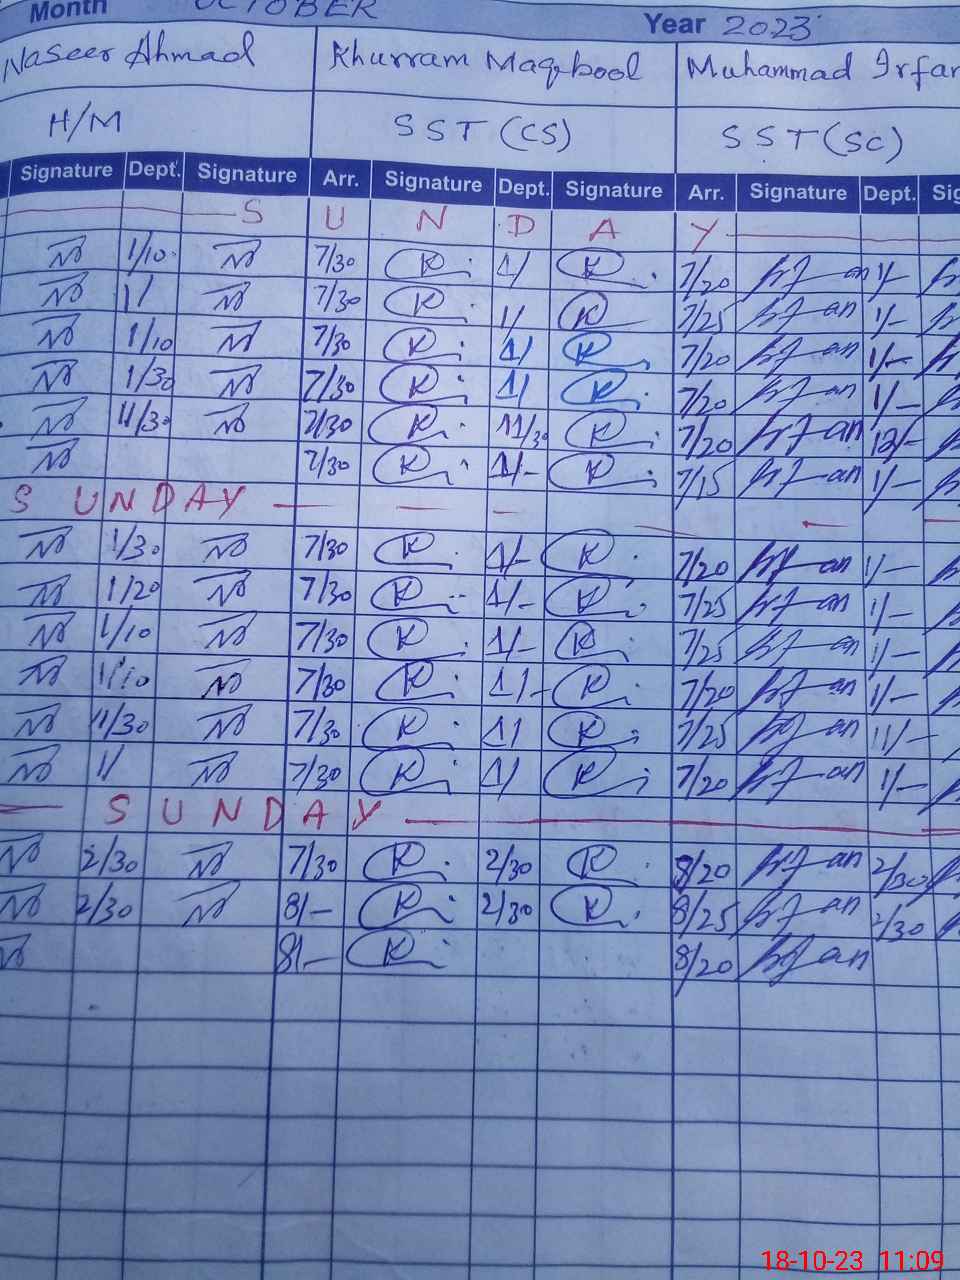 Month OCTOBER Year 2023
Naseer Ahmad Khurram Maqbool Muhammad Irfan
H/M SST (CS) SST (SC)
Signature Dept. Signature Arr. Signature Dept. Signature Arr. Signature Dept.
S U N D A Y
1/10 7/30 K 1/ K 7/20 Irfan 1/-
1/ 7/30 K 1/ K 7/25 Irfan 1/-
1/10 7/30 K 1/ K 7/20 Irfan 1/-
1/30 7/30 K 1/ K 7/20 Irfan 1/-
11/30 7/30 K 11/30 K 7/20 Irfan 12/-
7/30 K 1/- K 7/15 Irfan 1/-
S U N D A Y
1/30 7/30 K 1/- K 7/20 Irfan 1/-
1/20 7/30 K 1/- K 7/25 Irfan 1/-
1/10 7/30 K 1/- K 7/25 Irfan 1/-
1/10 7/30 K 1/- K 7/20 Irfan 1/-
11/30 7/30 K 11 K 7/25 Irfan 11/-
1/ 7/30 K 1/ K 7/20 Irfan 1/-
S U N D A Y
2/30 7/30 K 2/30 K 8/20 Irfan 2/30
2/30 8/- K 2/30 K 8/25 Irfan 2/30
8/- K 8/20 Irfan
18-10-23 11:09